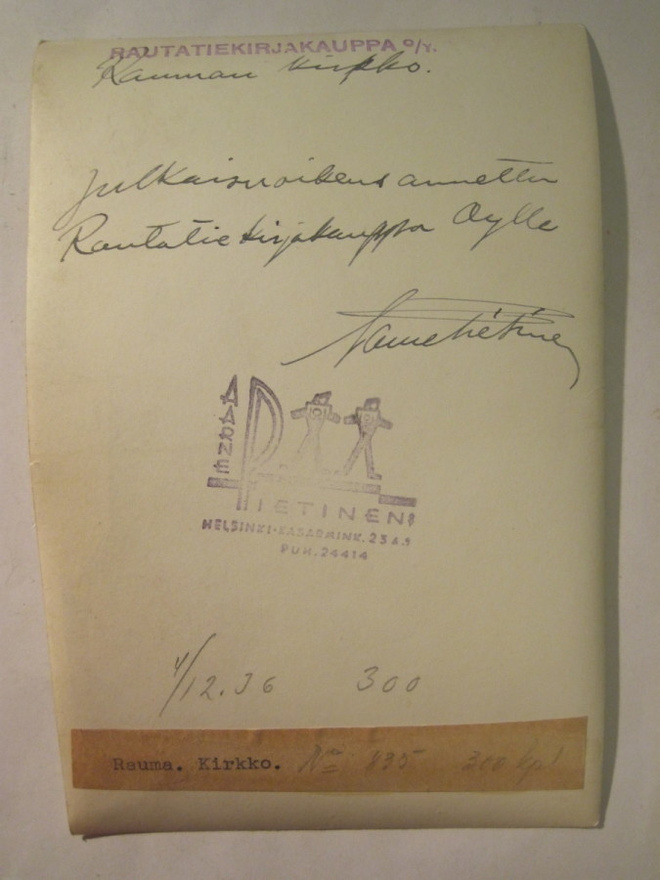 RAUTATIEKIRJAKAUPPA O/Y.
Rauman kirkko.
Julkaisuoikeus annettu
Rautatiekirjakauppa Oylle
Aarne Pietinen
AARNE
PIETINEN
HELSINKI-KASARMINK. 23 A.
PUH. 24414
4/12.36 300
Rauma. Kirkko. No 835 300 kpl